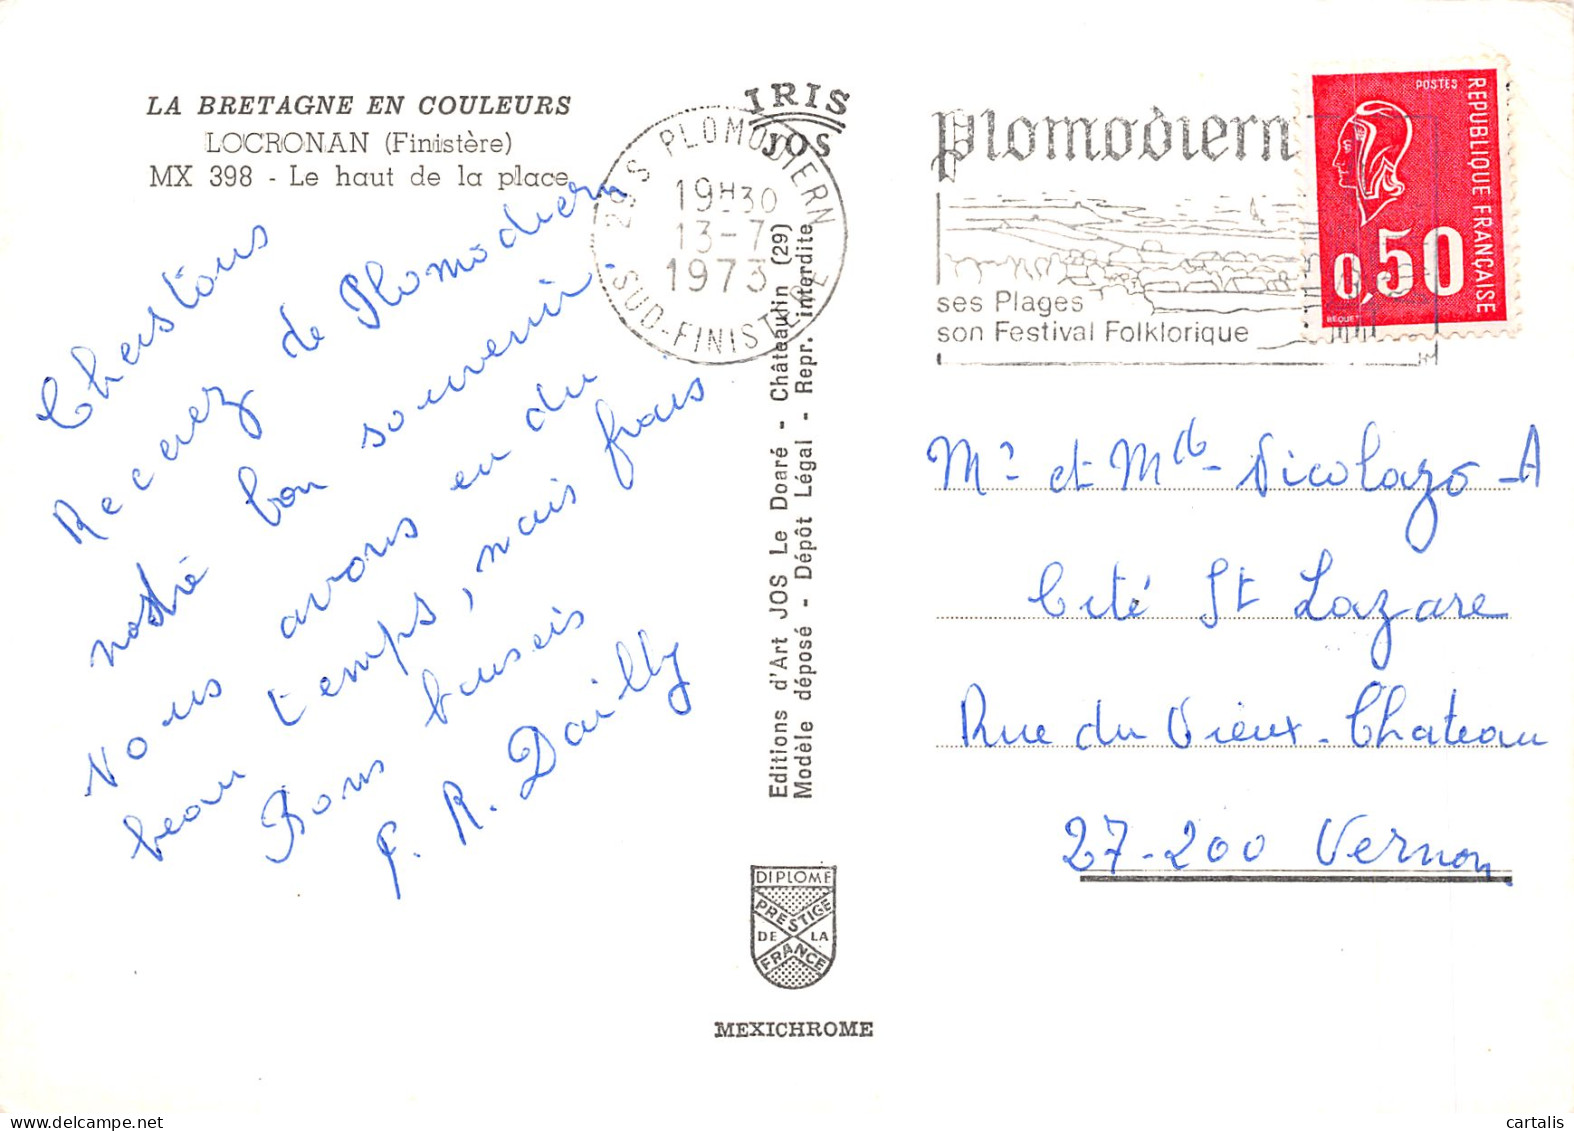 LA BRETAGNE EN COULEURS
LOCRONAN (Finistère)
MX 398 - Le haut de la place
Cherstous
Recevez de Plomodiern
nostre bon souvenir.
Nous avons eu du
beau temps, mais frais
Bons baiseis
F. R. Dailly
IRIS
JOS
29 S PLOMODIERN
19H30
13-7
1973
SUD-FINISTERE
Editions d'Art JOS Le Doaré - Châteaulin (29)
Modèle déposé - Dépôt Légal - Repr. interdite
DIPLOME
PRESTIGE
DE LA
FRANCE
MEXICHROME
Plomodiern
ses Plages
son Festival Folklorique
POSTES
REPUBLIQUE FRANÇAISE
0,50
BEQUET
Mr et Mde Nicolazo-A
Cité St Lazare
Rue du Vieux-Chateau
27-200 Vernon
cartalis